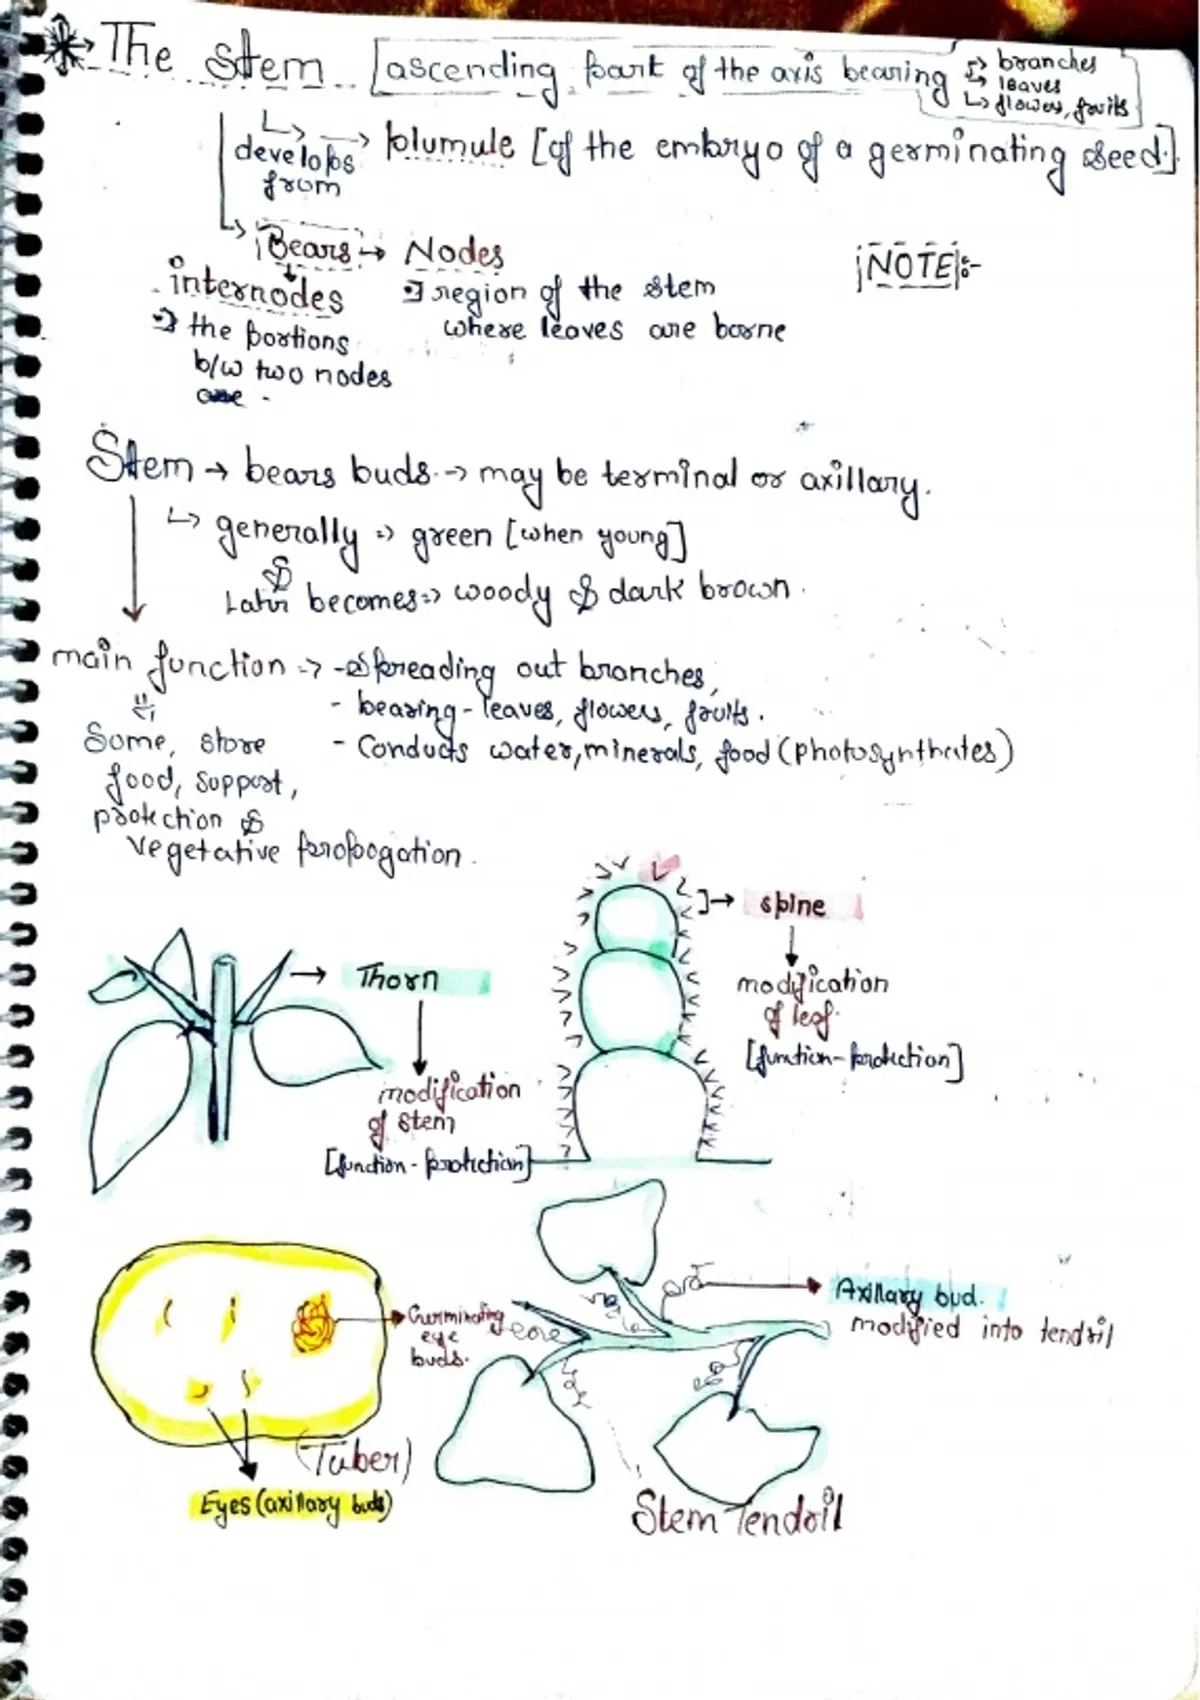 The Stem [ascending part of the axis bearing
→ branches
→ leaves
↳ flower, fruits
↳ develops from → plumule [of the embryo of a germinating seed.]
↳ Bears → Nodes
NOTE:-
internodes
region of the stem
where leaves are borne
the portions
b/w two nodes
Stem → bears buds → may be terminal or axillary.
↳ generally => green [when young]
&
Later becomes => woody & dark brown.
main function -> - Spreading out branches,
- bearing - leaves, flowers, fruits.
- Conducts water, minerals, food (photosynthates)
Some, store
food, support,
protection &
vegetative propogation.
→ spine
modification
of leaf.
[function - protection]
→ Thorn
modification
of stem
[function - protection]
Germinating
eye
buds.
(Tuber)
Eyes (axillary buds)
Axillary bud.
modified into tendril
Stem Tendril